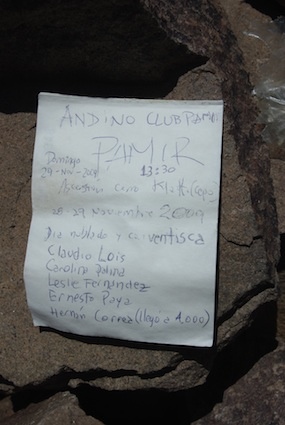 ANDINO CLUB PAMIR
PAMIR
Domingo
29-NOV-2009 13:30
Cerro
28-29 Noviembre 2009
Dia nublado y con ventisca
Claudio Lois
Carolina
Leslie Fernández
Ernesto Paya
Hernán Correa (llegó a 4.000)